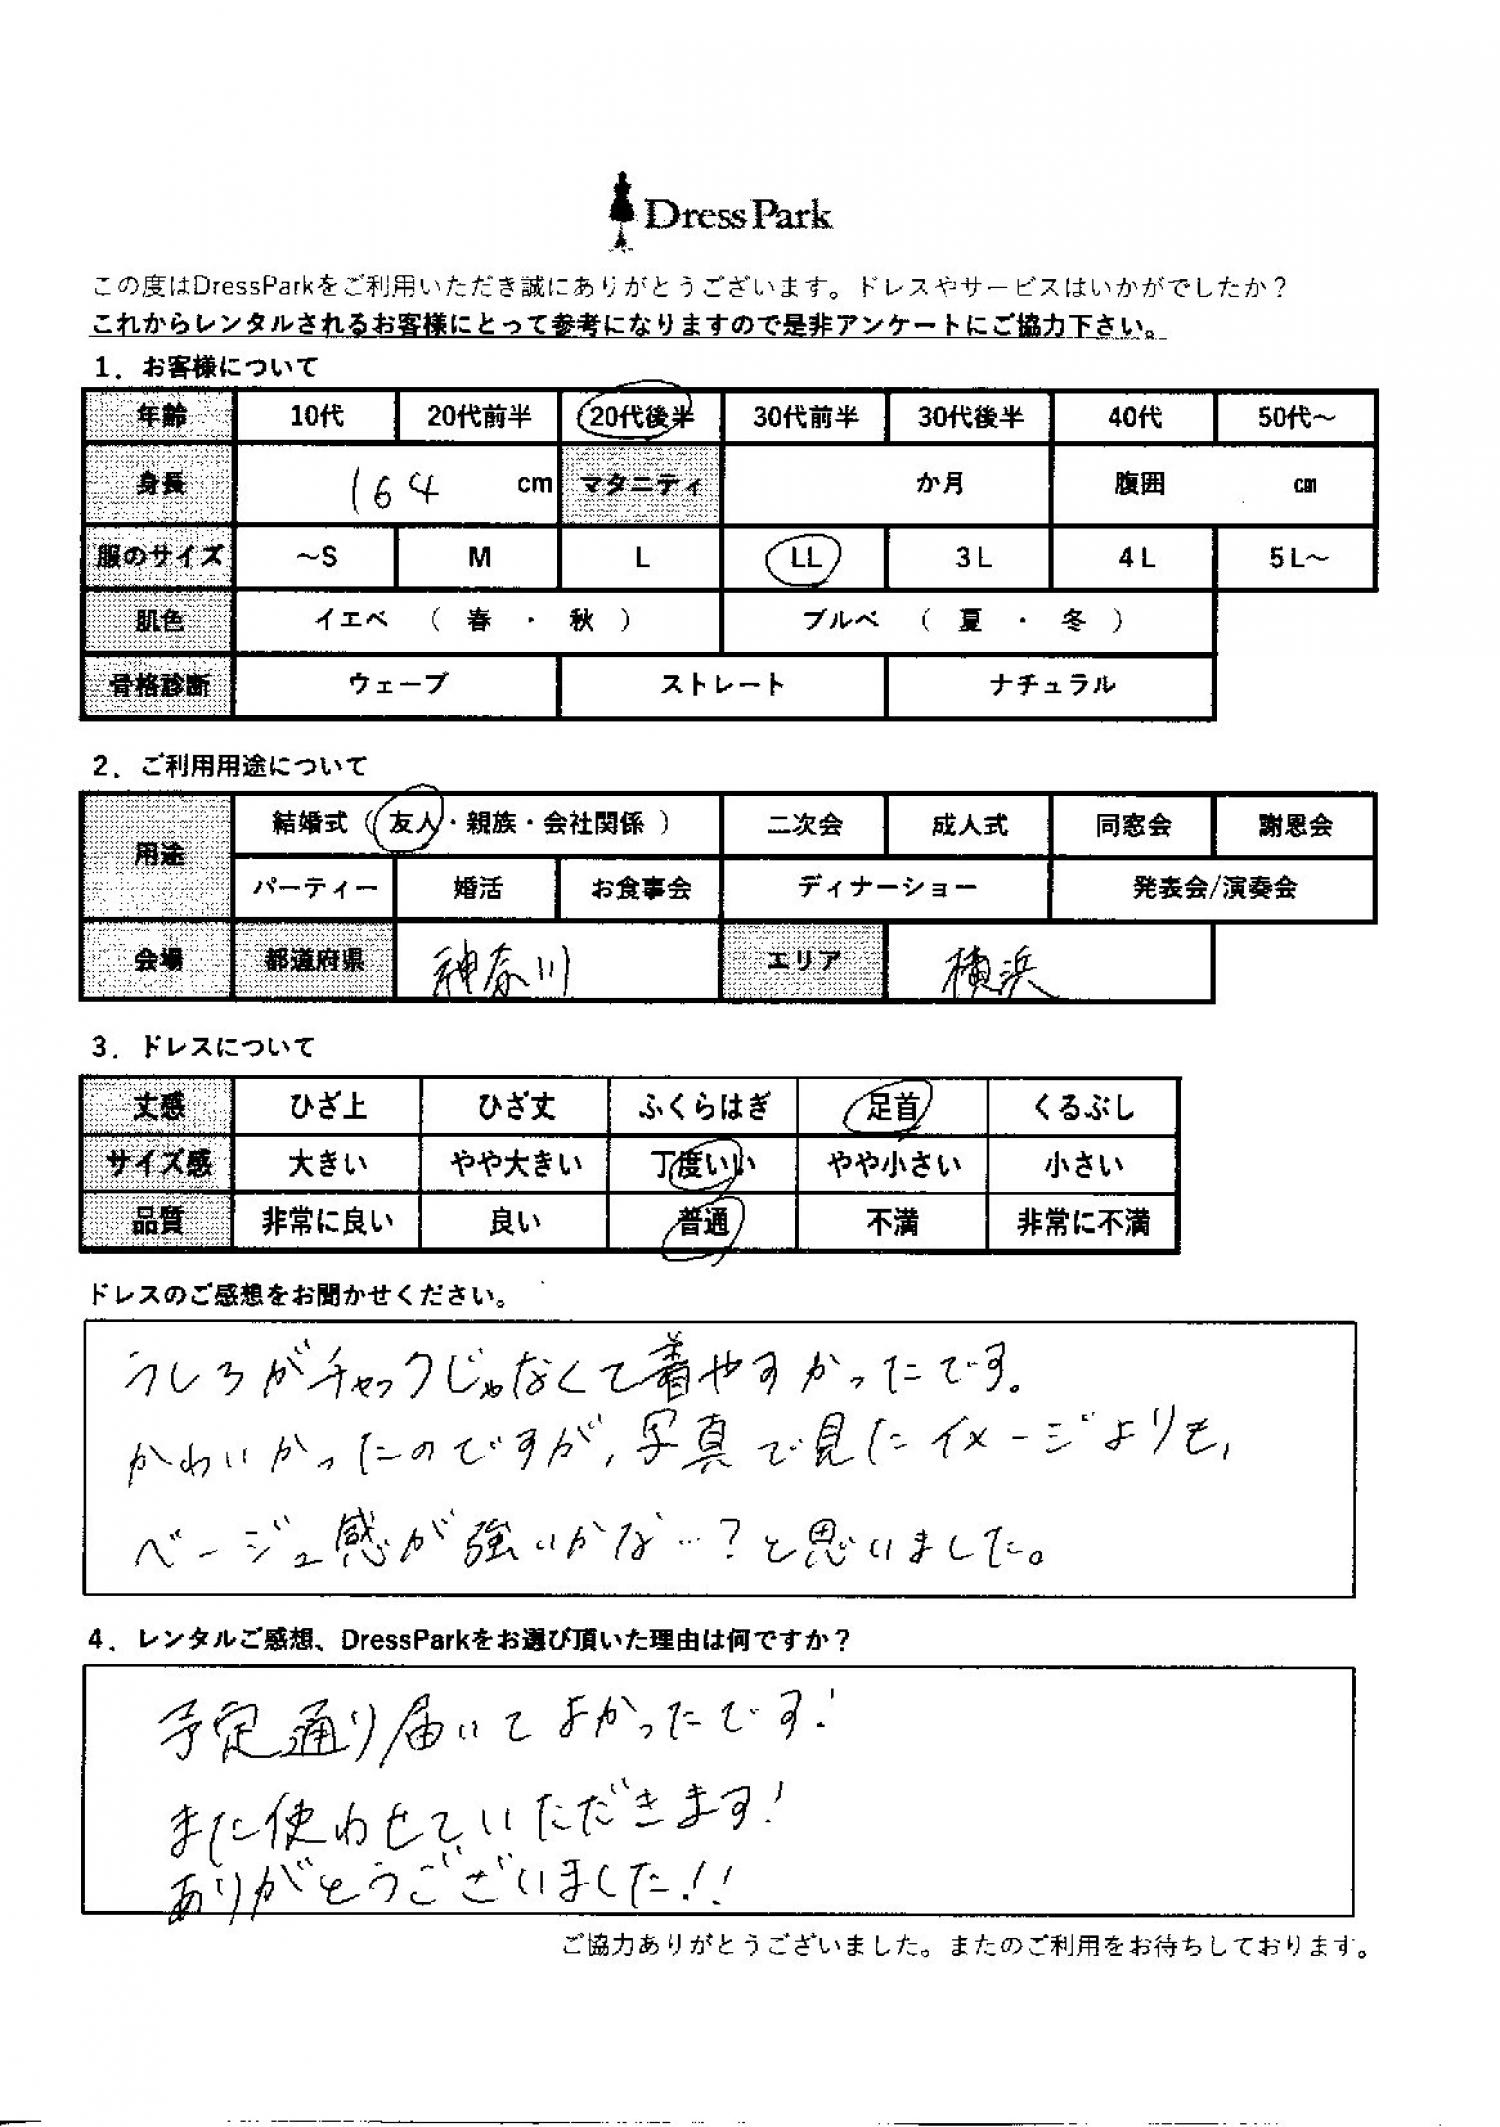 DressPark
この度はDressParkをご利用いただき誠にありがとうございます。ドレスやサービスはいかがでしたか？
これからレンタルされるお客様にとって参考になりますので是非アンケートにご協力下さい。
1．お客様について
年齢 10代 20代前半 20代後半 30代前半 30代後半 40代 50代～
身長 164 cm マタニティ か月 腹囲 cm
服のサイズ ～S M L LL 3L 4L 5L～
肌色 イエベ （ 春 ・ 秋 ） ブルベ （ 夏 ・ 冬 ）
骨格診断 ウェーブ ストレート ナチュラル
2．ご利用用途について
用途 結婚式（ 友人・親族・会社関係 ） 二次会 成人式 同窓会 謝恩会
パーティー 婚活 お食事会 ディナーショー 発表会/演奏会
会場 都道府県 神奈川 エリア 横浜
3．ドレスについて
丈感 ひざ上 ひざ丈 ふくらはぎ 足首 くるぶし
サイズ感 大きい やや大きい 丁度いい やや小さい 小さい
品質 非常に良い 良い 普通 不満 非常に不満
ドレスのご感想をお聞かせください。
うしろがチャックじゃなくて着やすかったです。
かわいかったのですが、写真で見たイメージよりも、
ベージュ感が強いかな…？と思いました。
4．レンタルご感想、DressParkをお選び頂いた理由は何ですか？
予定通り届いてよかったです！
また使わせていただきます！
ありがとうございました！！
ご協力ありがとうございました。またのご利用をお待ちしております。